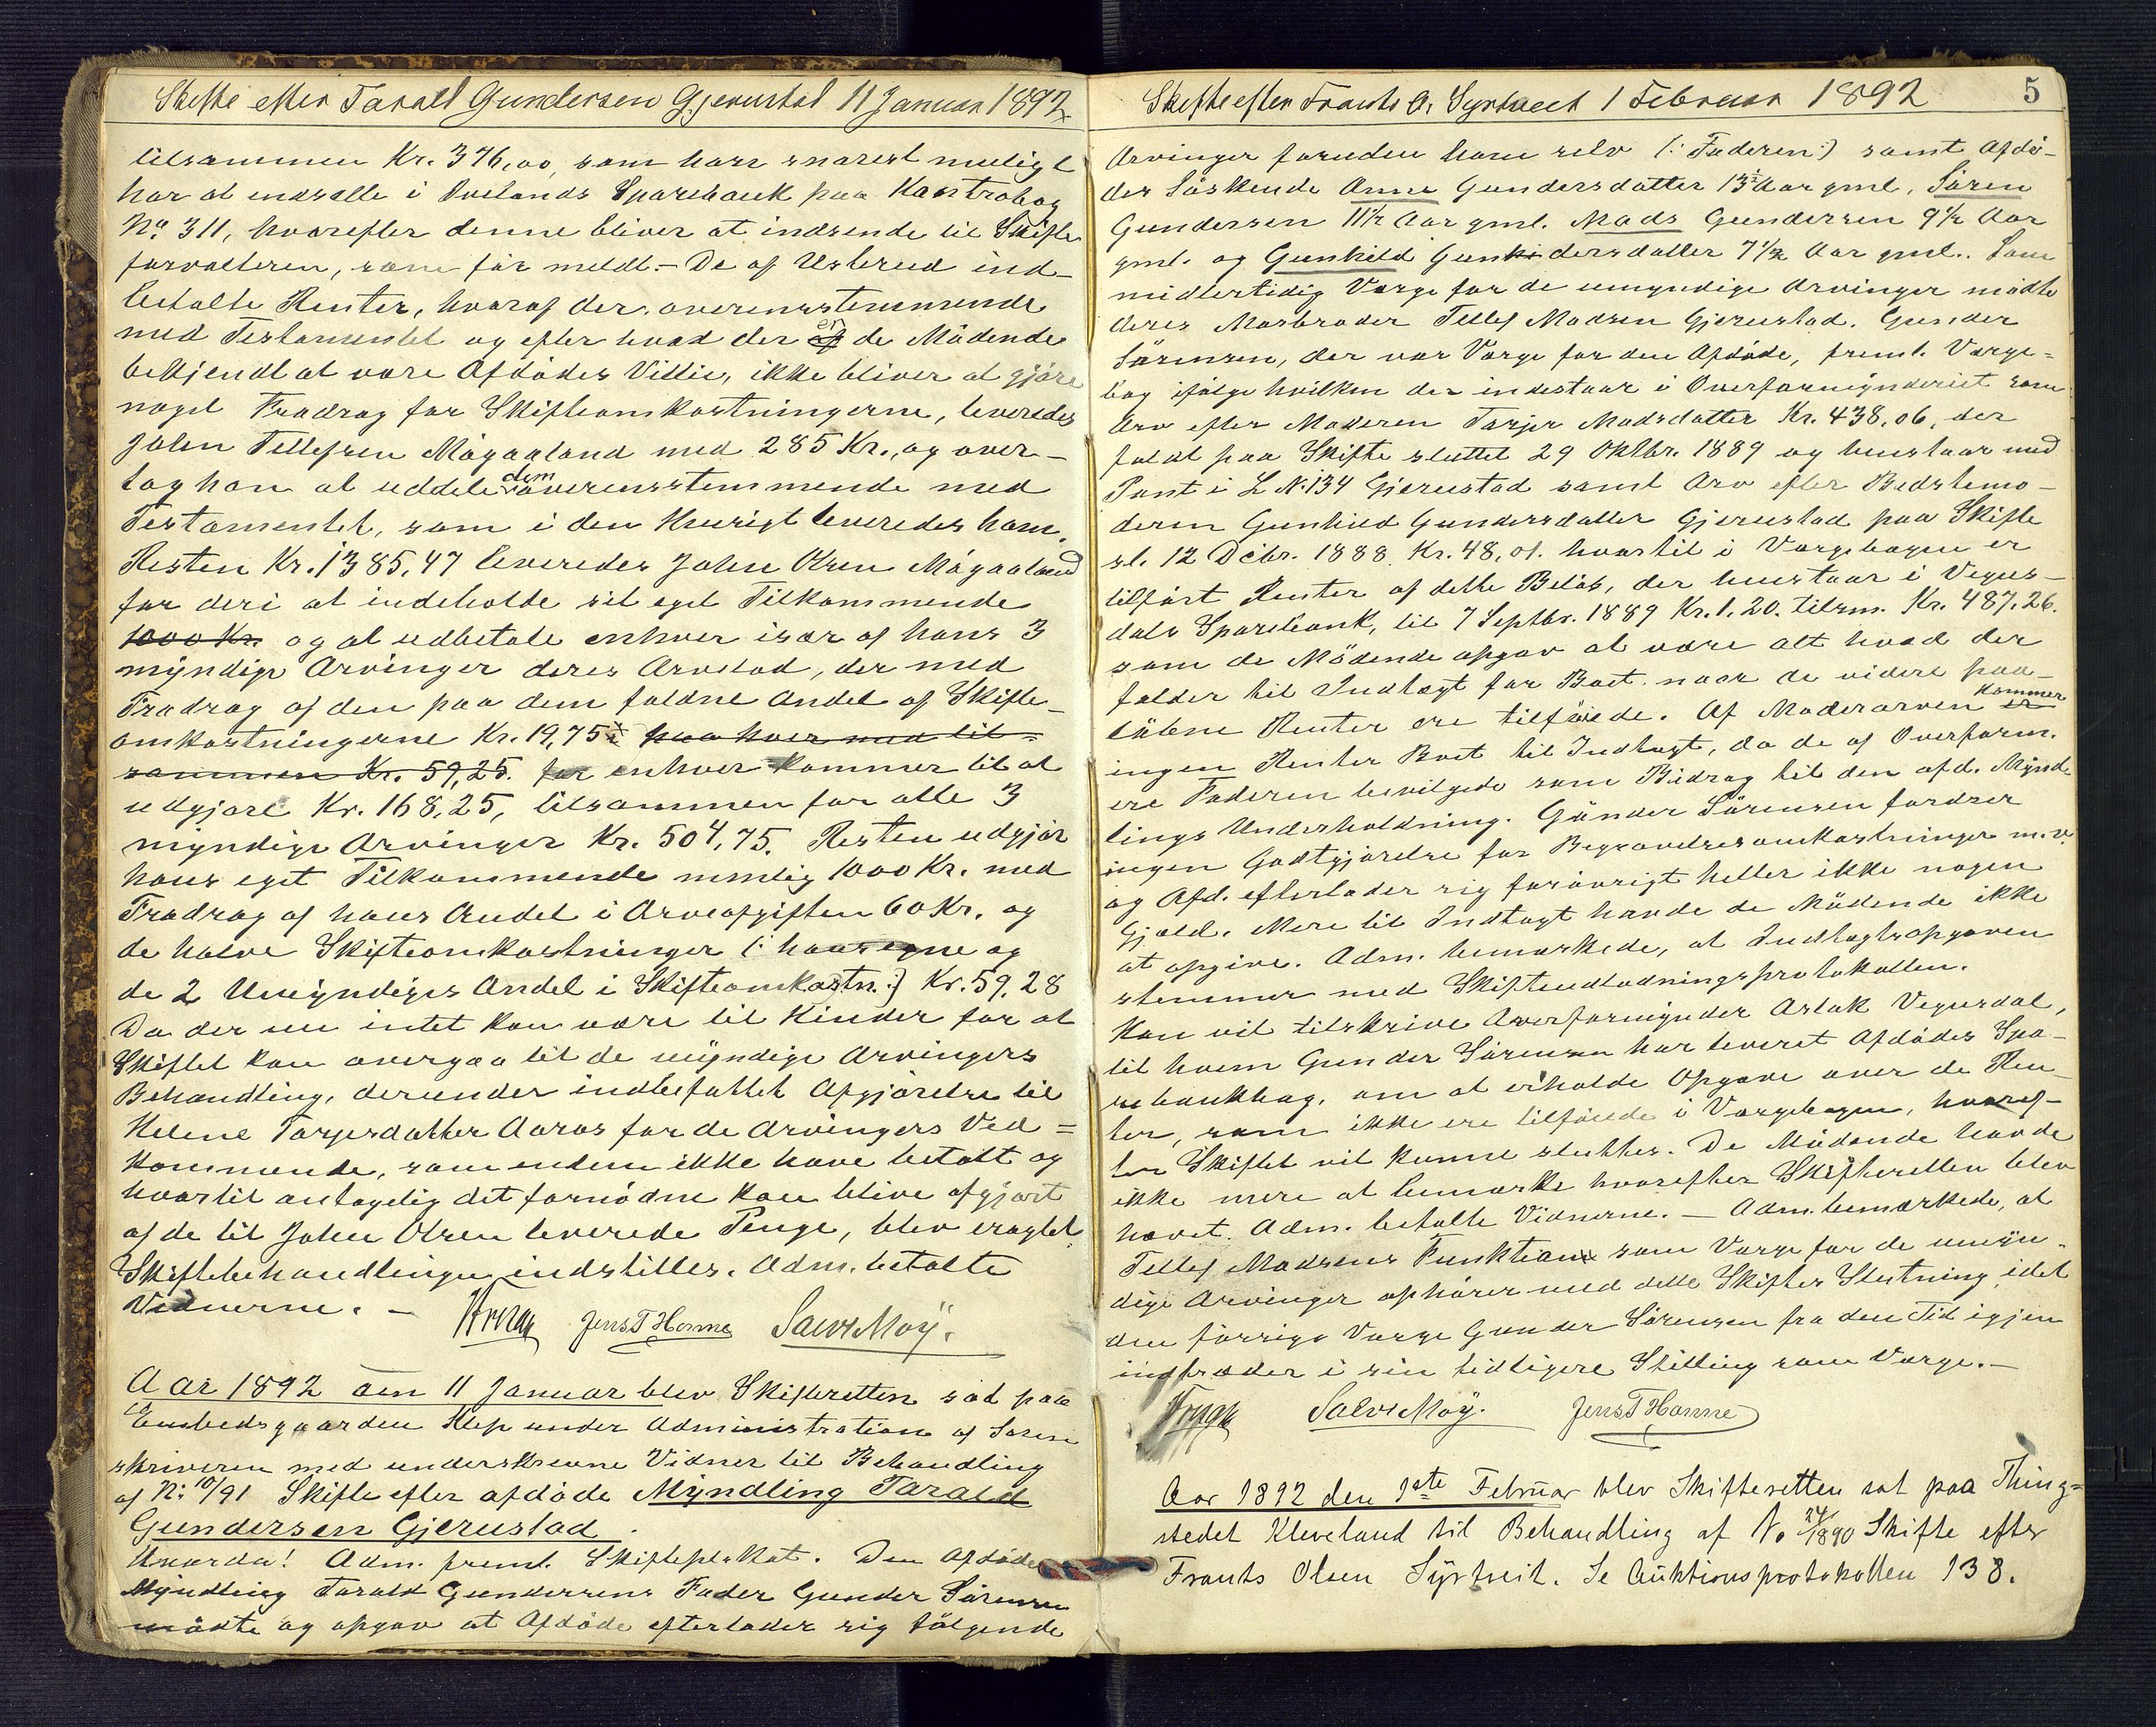 Skifte efter Tarald Gundersen Gjerustad 11 Januar 1892
tilsammen Kr. 376,00, som han snarest muligt
har at indsætte i Sparebank paa Kontrabog
No 311, hvorefter denne bliver at indsende til Skifte
forvalteren, som før meldt. – De af Usterud ind-
betalte Renter, hvoraf der overensstemmende
med Testamentet og efter hvad der er de Mødende
bekjendt at være Afdødes Villie, ikke bliver at gjøre
noget Fradrag for Skifteomkostningerne, leveredes
John Tellefsen Mögaaland med 285 Kr., og over-
tog han at uddele dem overensstemmende med
Testamentet, som i den leveredes ham.
Resten Kr. 1385,47 leveredes John Olsen Mögaaland
for deri at indeholde sit eget Tilkommende
1000 Kr. og at udbetale enhver især af hans 3
myndige Arvinger deres Arvelod, der med
Fradrag af den paa dem faldne Andel af Skifte-
omkostningerne Kr. 19,75 paa hver med til-
sammen Kr. 59,25. for enhver kommer til at
udgjøre Kr. 168,25, tilsammen for alle 3
myndige Arvinger Kr. 504,75. Resten udgjør
hans eget Tilkommende nemlig 1000 Kr. med
Fradrag af hans Andel i Arveafgiften 60 Kr. og
de halve Skifteomkostninger (: hans egne og
de 2 Umyndiges Andel i Skifteomkostn. :) Kr. 59,28
Da der nu intet kan være til Hinder for at
Skiftet kan overgaa til de myndige Arvingers
Behandling, derunder indbefattet Afgjørelse til
Helene Torjersdatter Aaros for de Arvingers Ved-
kommende, som endnu ikke have betalt og
hvortil antagelig det fornødne kan blive afgjort
af de til John Olsen leverede Penge, blev eragtet
Skiftebehandlingen indstilles. Adm. betalte
Vidnerne. –
Jens T Homme Salve Moÿ.
Aar 1892 den 11 Januar blev Skifteretten sat paa
Embedsgaarden Klep under Administration af Soren-
skriveren med underskrevne Vidner til Behandling
af No 10/91 Skifte efter afdøde Myndling Tarald
Gundersen Gjerustad.
Hvorda! Adm. freml. Skifteplakat. Den Afdøde
Myndling Tarald Gundersens Fader Gunder Sörensen
mødte og opgav at Afdøde efterlader sig følgende
Skifte efter Frants O. Syrtveit 1 Februar 1892
5
Arvinger foruden ham selv (: Faderen :) samt Afdø-
des Söskende Anne Gundersdatter 13½ Aar gml., Sören
Gundersen 11½ Aar gml. Mads Gundersen 9½ Aar
gml. og Gunhild Gundersdatter 7½ Aar gml.. Som
midlertidig Værge for de umyndige Arvinger mødte
deres Morbroder Tellef Madsen Gjerustad. Gunder
Sörensen, der var Værge for den Afdøde, freml. Værge-
bog ifølge hvilken der indestaar i Overformynderiet som
Arv efter Moderen Torjer Madsdatter Kr. 438,06, der
faldt paa Skifte sluttet 29 Oktbr. 1889 og henstaar med
Pant i L N. 134 Gjerustad samt Arv efter Bedstemo-
deren Gunhild Gundersdatter Gjerustad paa Skifte
sl. 12 Decbr. 1888 Kr. 48,01. hvortil i Værgebogen er
tilført Renter af dette Beløb, der henstaar i Vegus-
dals Sparebank, til 7 Septbr. 1889 Kr. 1.20. tilsm. Kr. 487.26.
som de Mødende opgav at være alt hvad der
falder til Indtægt for Boet. naar de videre paa-
løbne Renter ere tilførte. Af Moderarven kommer
ingen Renter Boet til Indtægt, da de af Overform.
ere Faderen bevilgede som Bidrag til den afd. Mynd-
lings Underholdning. Gunder Sörensen fordrer
ingen Godtgjørelse for Begravelsesomkostninger m. v.
og Afd. efterlader sig forøvrigt heller ikke nogen
Gjæld. Mere til Indtægt havde de Mødende ikke
at opgive. Adm. bemærkede, at Indtægtsopgaven
stemmer med Skifteudlodningsprotokollen.
Han vil tilskrive Overformynder Aslak Vegusdal,
til hvem Gunder Sörensen har leveret Afdødes Spa-
rebankbog, om at erholde Opgave over de Ren-
ter, som ikke ere tilførte i Værgebogen, hvoref-
ter Skiftet vil kunne sluttes. De Mødende havde
ikke mere at bemærke hvorefter Skifteretten blev
hævet. Adm. betalte Vidnerne. – Adm. bemærkede, at
Tellef Madsens Funktion som Værge for de umyn-
dige Arvinger ophører med dette Skiftes Slutning, idet
den forrige Værge Gunder Sörensen fra den Tid igjen
indtræder i sin tidligere Stilling som Værge. –
Salve Moÿ. Jens T Homme
Aar 1892 den 1ste Februar blev Skifteretten sat paa Thing-
stedet Kleveland til Behandling af No 24/1890 Skifte efter
Frants Olsen Syrtveit. Se Auktionsprotokollen 138.